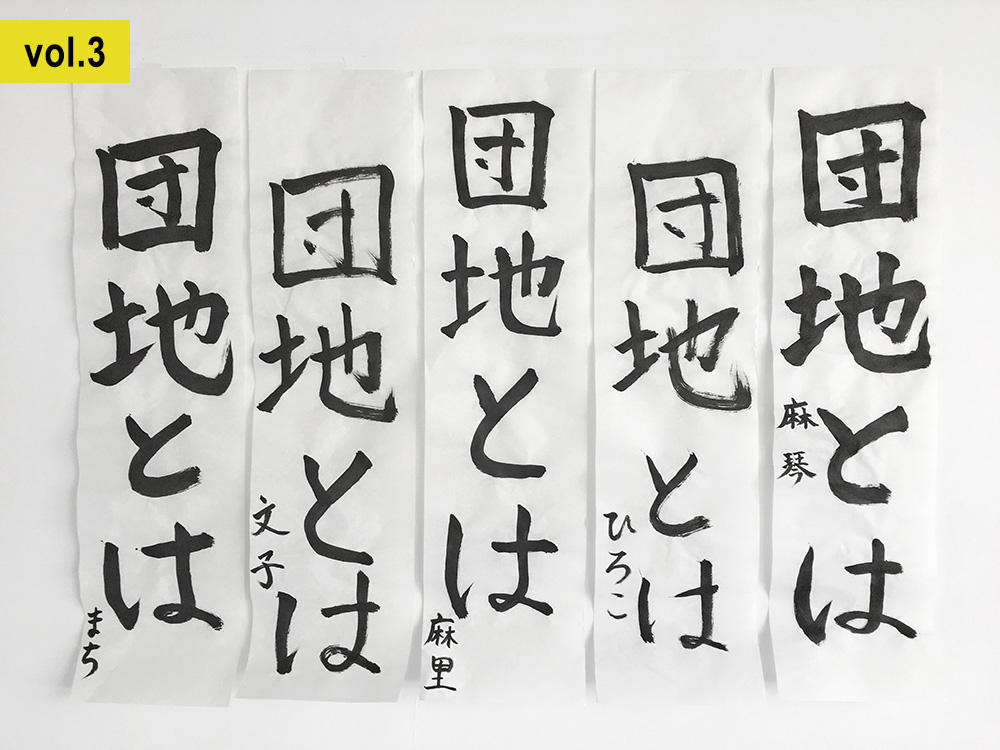 vol.3
団地とは
麻琴
団地とは
ひろこ
団地とは
麻里
団地とは
文子
団地とは
まち